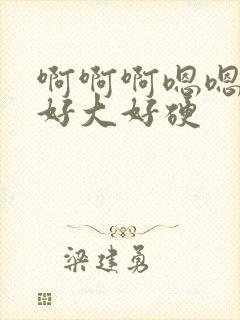 啊啊啊嗯嗯
好大好硬
梁建勇